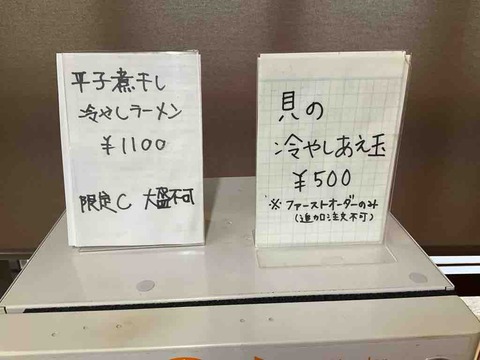 平子煮干し
冷やしラーメン
¥1100
限定C 大盛不可
貝の
冷やしあえ玉
¥500
※ ファーストオーダーのみ
(追加注文不可)